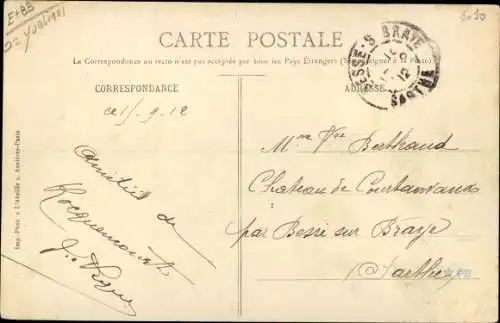 E+85
5.50
CARTE POSTALE
La Correspondance au recto n'est pas acceptée par tous les Pays Étrangers (Se renseigner à la Poste)
CORRESPONDANCE
ADRESSE
BESSE-S-BRAYE
12
SARTHE
ce 15-9-12
amitiés de
Rocquencourt
Mme Vve Berthaud
Chateau de Courtanvaux
par Bessé sur Braye
(Sarthe)
Imp.-Phot. « L'Abeille », Asnières-Paris